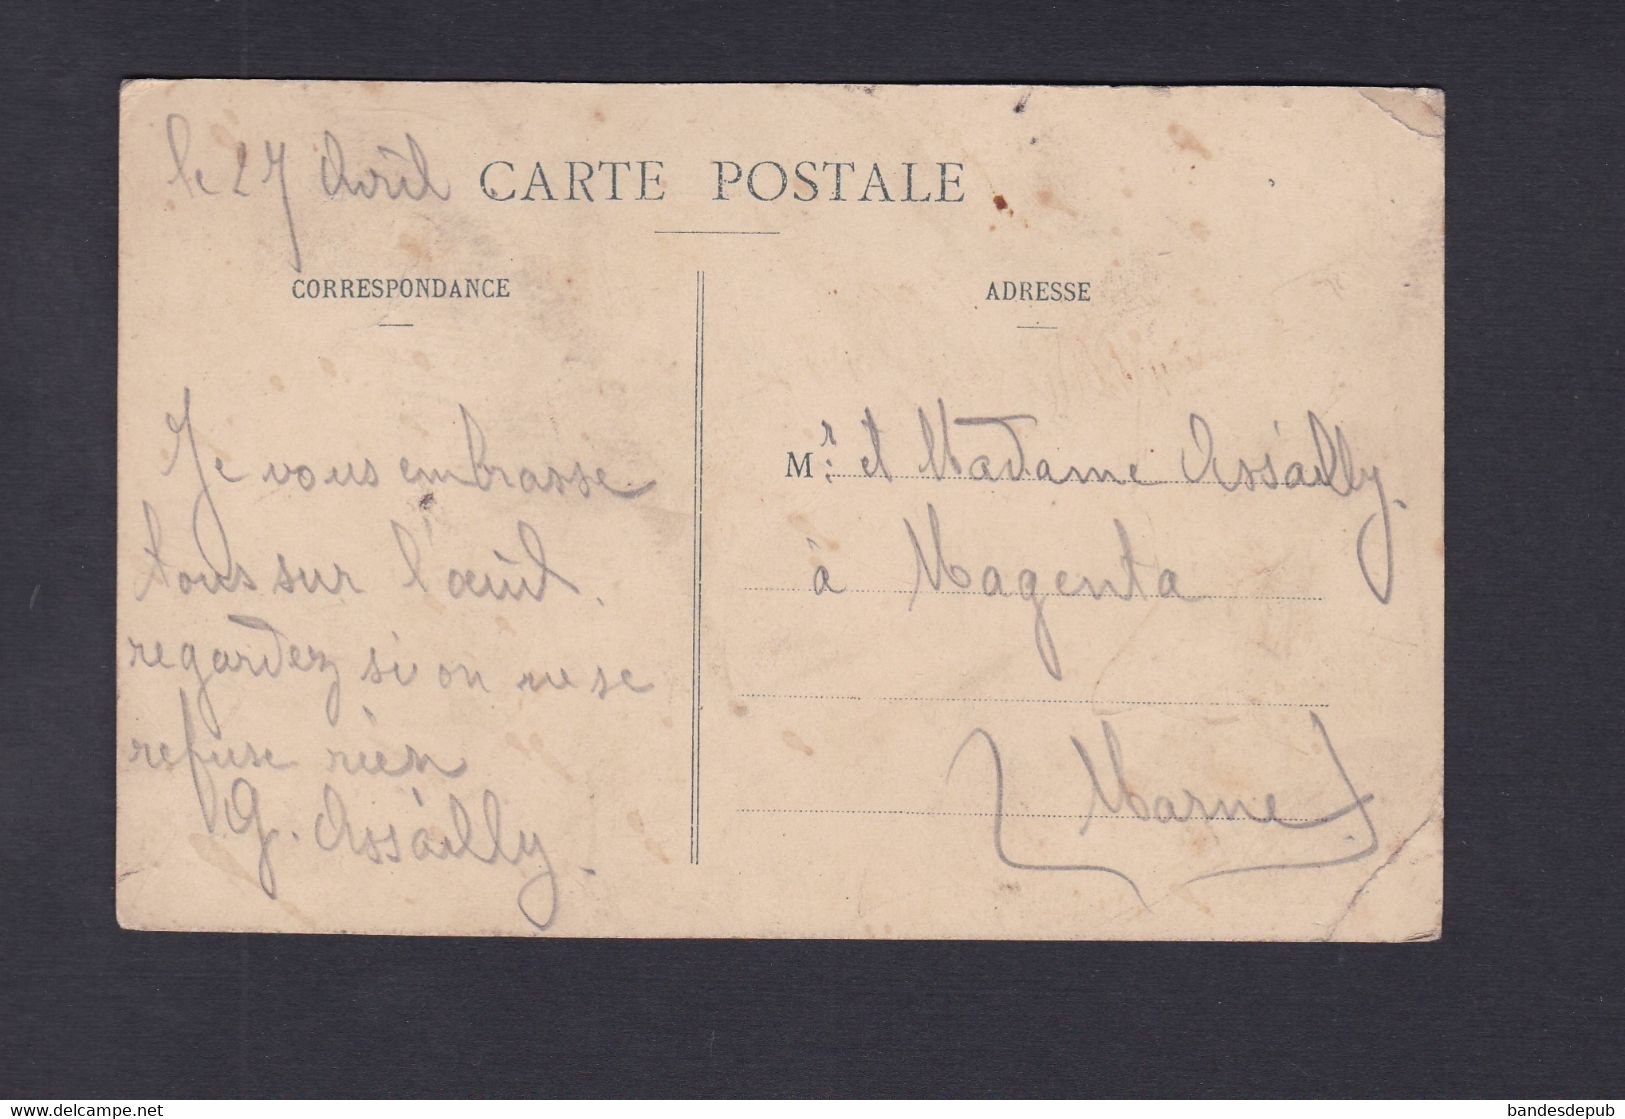 le 27 Avril
CARTE POSTALE
CORRESPONDANCE
Je vous embrasse
tous sur l'œuil.
regardez si on ne se
refuse rien
G. Assailly.
ADRESSE
Mr. et Madame Assailly.
à Magenta
Marne
www.delcampe.net
bandesdepub